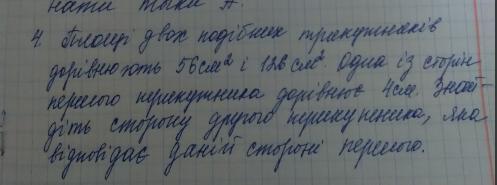 нати точки А.
4. Площі двох подібних трикутників
дорівнюють 56см² і 126см². Одна із сторін
першого трикутника дорівнює 4см. Знай-
діть сторону другого трикутника, яка
відповідає даній стороні першого.